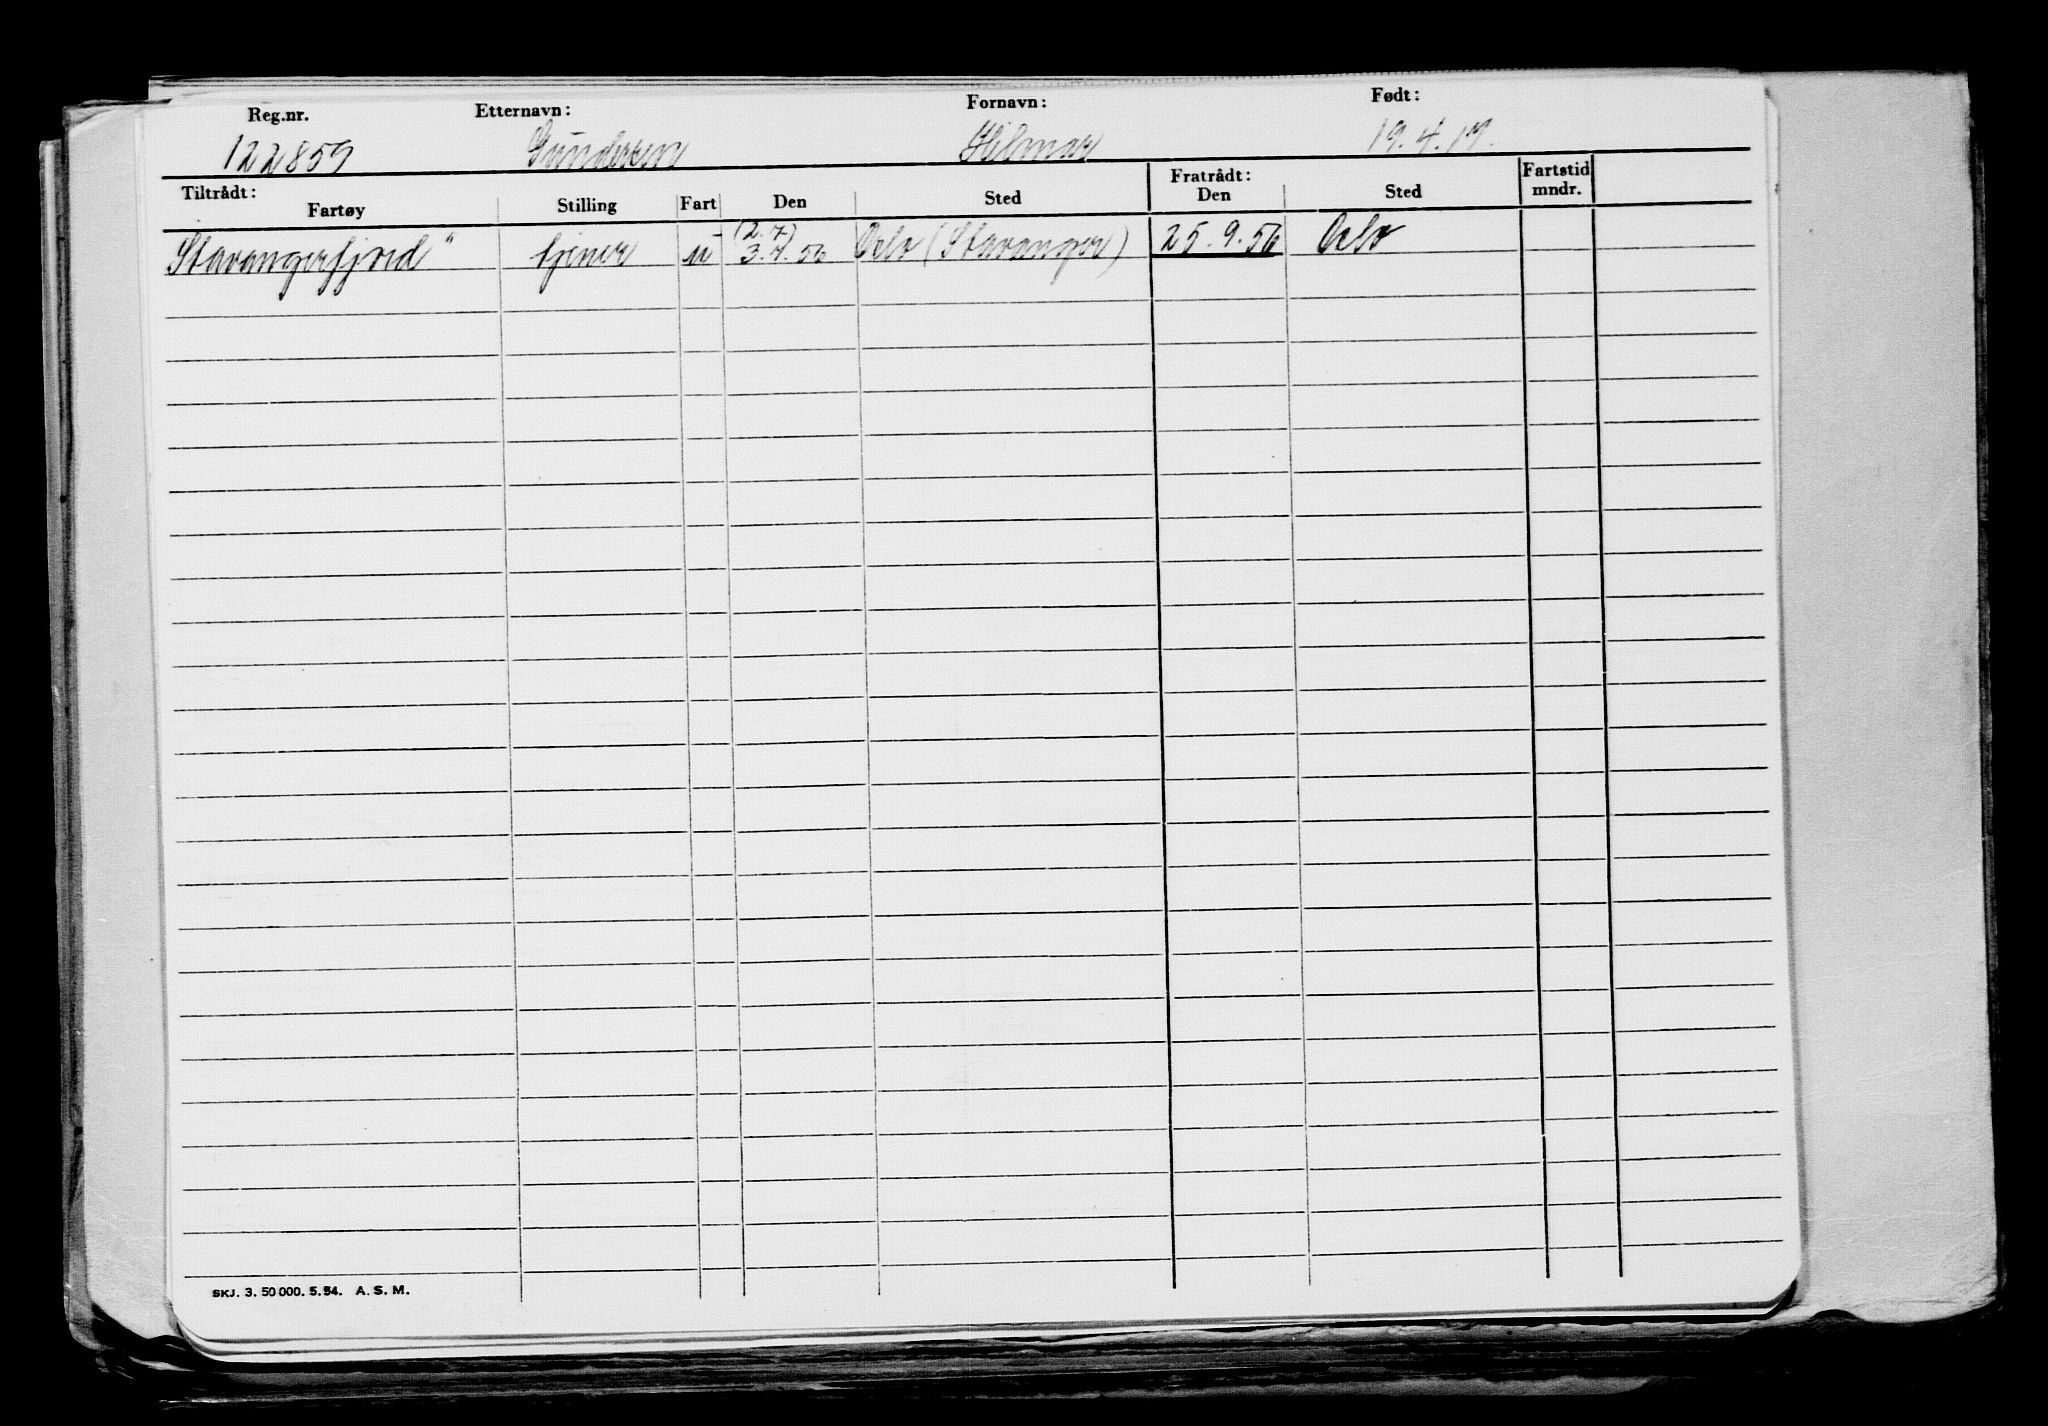 Reg.nr. Etternavn: Fornavn: Født:
122859 Gundersen Hilmar 19.4.19.
Tiltrådt: Fratrådt: Fartstid
Fartøy Stilling Fart Den Sted Den Sted mndr.
(2.7)
Stavangerfjord" tjener u 3.7.56 Oslo (Stavanger) 25.9.56 Oslo
SKJ. 3. 50 000. 5. 54. A. S. M.